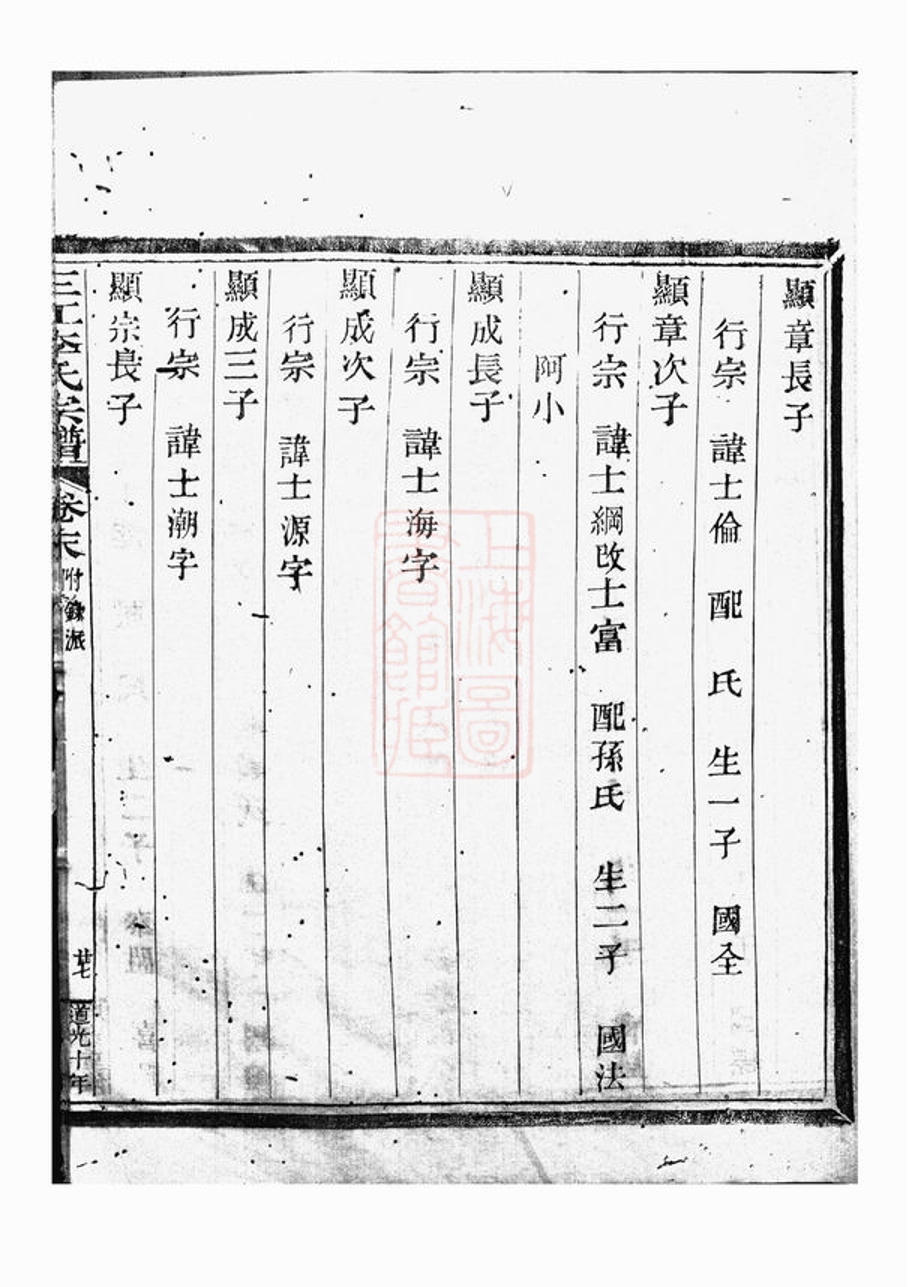 顯章長子
行宗 諱士倫 配 氏 生一子 國全
顯章次子
行宗 諱士綱改士富 配孫氏 生二子 國法
阿小
顯成長子
行宗 諱士海字
顯成次子
行宗 諱士源字
顯成三子
行宗 諱士潮字
顯宗長子
三江李氏宗譜 卷末 附錄派 廿七 道光十年
上海圖書館藏